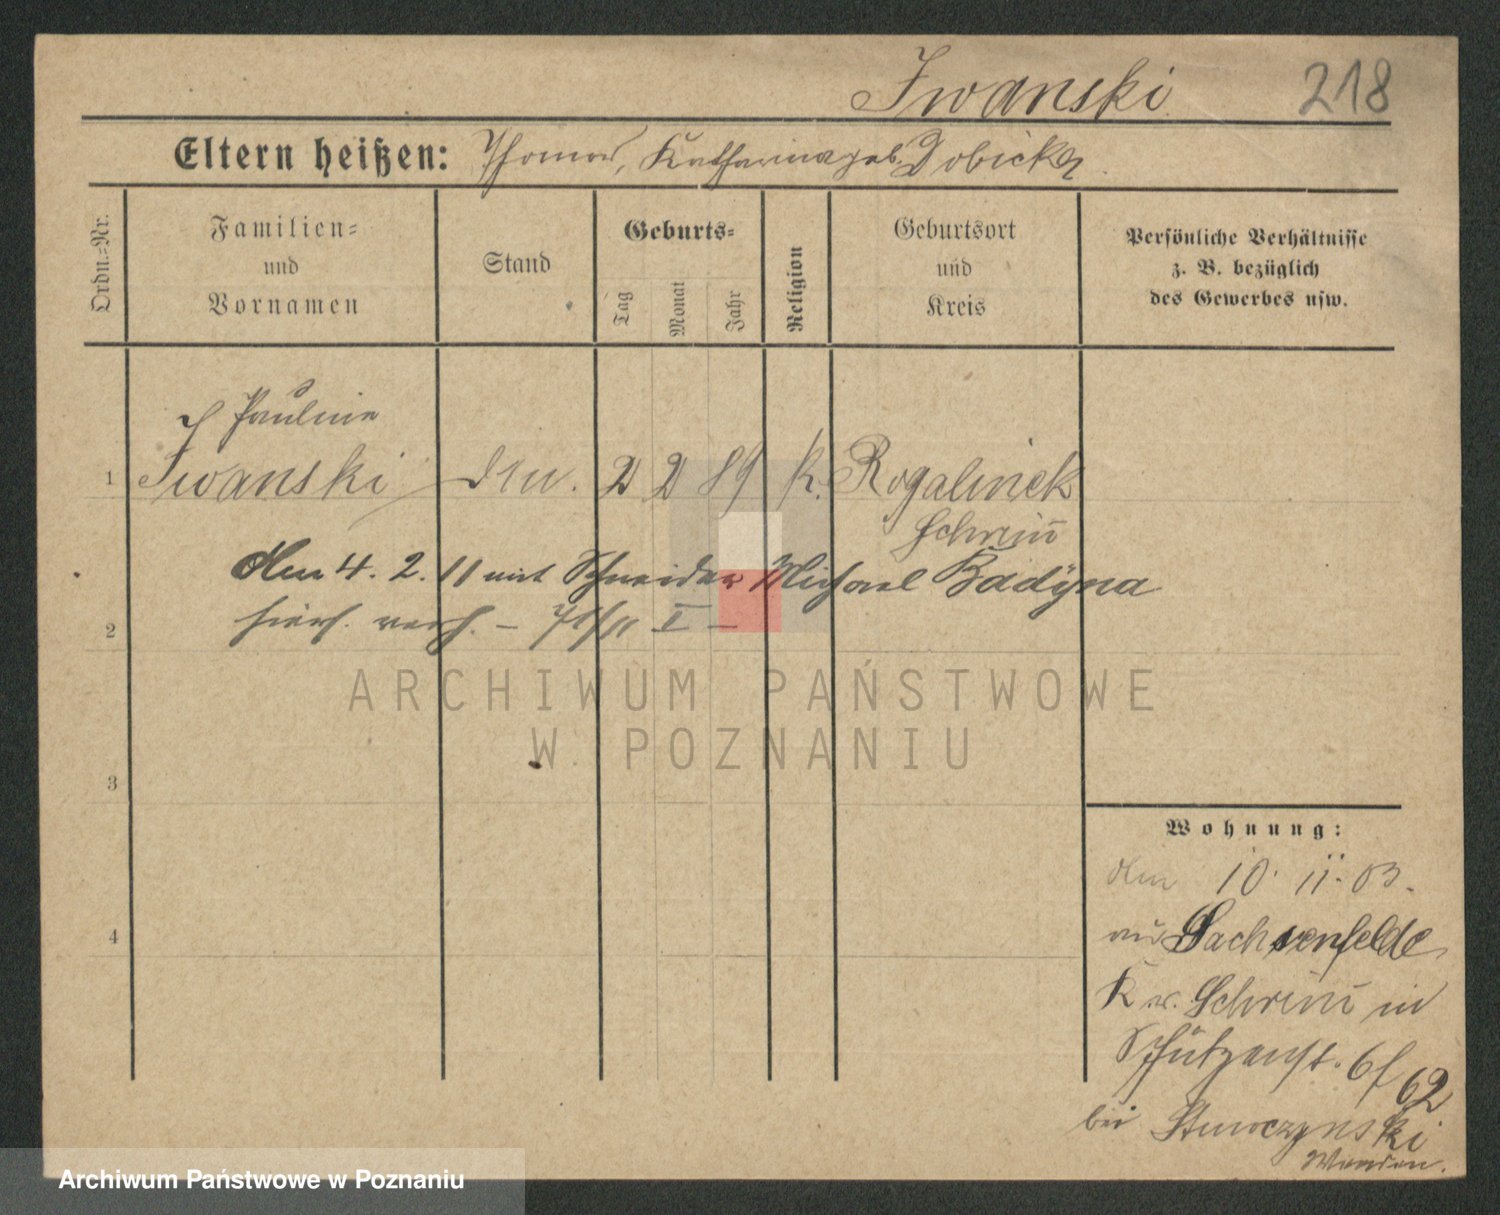 Iwanski 218
Eltern heißen: Thomas, Katharina geb. Dobicka.
Ordn.-Nr.
Familien-
und
Vornamen
Stand
Geburts-
Tag
Monat
Jahr
Religion
Geburtsort
und
Kreis
Persönliche Verhältnisse
z. B. bezüglich
des Gewerbes usw.
Pauline
1 Iwanski 2 2 89 k. Rogalinek
Schrim
den 4. 2. 11 mit Schneider Michael Badyna
2 hiers. verh. – 71/11 I –
ARCHIWUM PAŃSTWOWE
W POZNANIU
3
4
Wohnung:
den 10. 11. 03.
aus Sachsenfelde
Kr. Schrim in
Schützenst. 6/62
bei
Archiwum Państwowe w Poznaniu